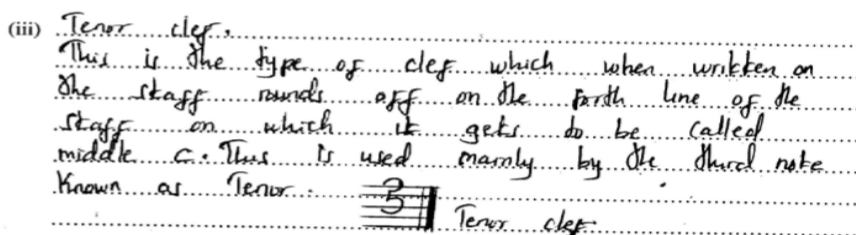 (iii) Tenor clef.
This is the type of clef which when written on
the staff rounds off on the forth line of the
staff on which it gets to be called
middle c. This is used mainly by the third note
Known as Tenor.
Tenor clef